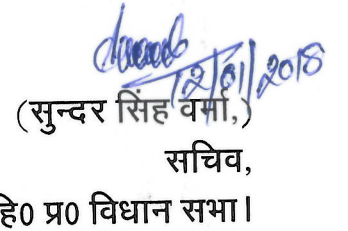 12/01/2018
(सुन्दर सिंह वर्मा,)
सचिव,
हि0 प्र0 विधान सभा।